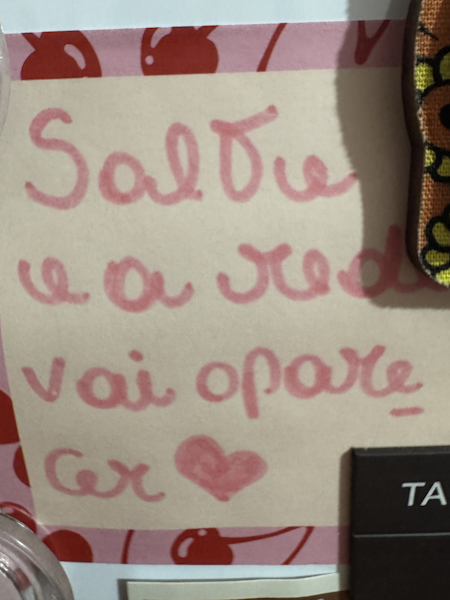 Salte
e a red
vai opare
cer ♥
TA